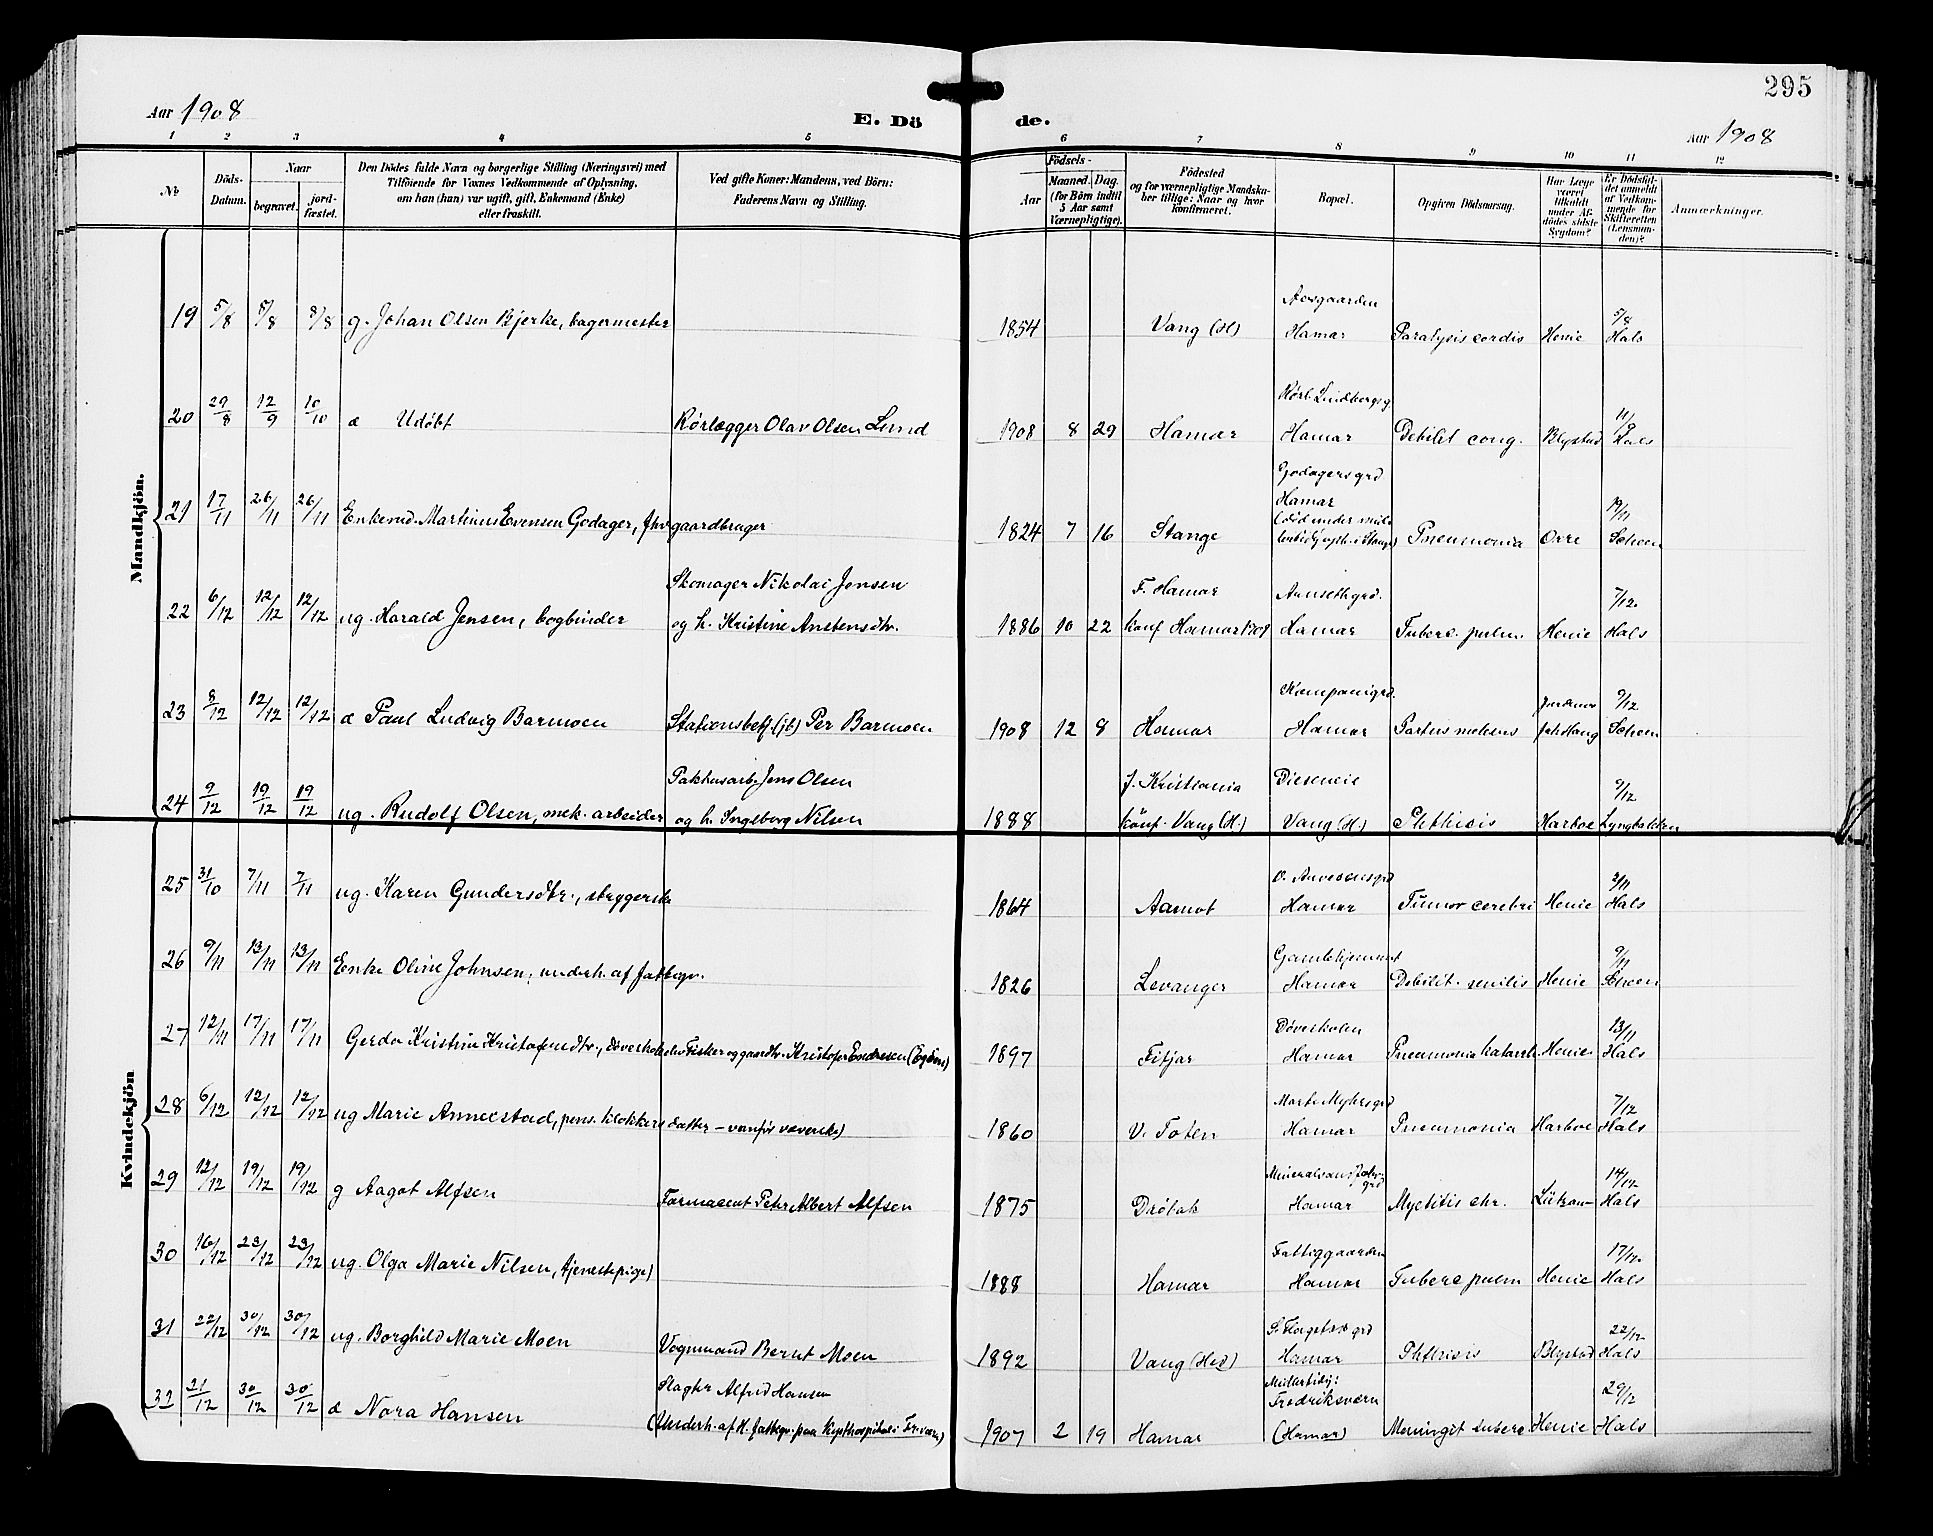 295
Aar 1908
E. Dö
de.
Aar 1908
1 2 3 4 5 6 7 8 9 10 11 12
No
Döds-
Datum.
Naar
begravet.
jord-
fæstet.
Den Dödes fulde Navn og borgerlige Stilling (Næringsvei) med
Tilföiende for Voxnes Vedkommende af Oplysning,
om han (hun) var ugift, gift, Enkemand (Enke)
eller fraskilt.
Ved gifte Koner: Mandens, ved Börn:
Faderens Navn og Stilling.
Födsels-
Aar
Maaned. Dag.
(for Börn indtil
5 Aar samt
Værnepligtige).
Födested
og for værnepligtige Mandska-
ber tillige: Naar og hvor
konfirmeret.
Bopæl.
Opgiven Dödsaarsag.
Har Læge
været
tilkaldt
under Af-
dödes sidste
Sygdom?
Er Dödsfal-
det anmeldt
af Vedkom-
mende for
Skifteretten
(Lensman-
den)?
Anmærkninger.
Mandkjön.
19 5/8 8/8 8/8 g. Johan Olsen Bjerke, bagermester 1854 Vang (H) Hamar Paralysis cordis Henie 5/8 Hals
20 29/8 12/9 10/10 d Udøbt Rørlægger Olav Olsen Lund 1908 8 29 Hamar Rørl. Lindbergs g. Hamar Debilit cong. Blystad 11/9 Hals
21 17/11 26/11 26/11 Enkemd. Martinus Evensen Godager, fhv gaardbruger 1824 7 16 Stange Godagers grd
Hamar
Pneumonia Ovre 19/11 Scheen
22 6/12 12/12 12/12 ug. Harald Jensen, bogbinder Skomager Nikolai Jensen
og h. Kristine Anstensdtr. 1886 10 22 F. Hamar
konf Hamar Hamar Tuberc. pulm. Henie 7/12 Hals
23 8/12 12/12 12/12 d Paul Ludvig Barmoen Stationsbetj. (jb) Per Barmoen 1908 12 8 Hamar Kompanigrd.
Hamar Partus Jordmor 9/12 Scheen
24 9/12 19/12 19/12 ug. Rudolf Olsen, mek. arbeider Pakhusarb. Jens Olsen
og h. Ingeborg Nilsen 1888 f. Kristiania
konf. Vang (H.) Vang (H.) Phthisis Harboe 9/12 Lyngbakken
Kvindekjön
25 31/10 7/11 7/11 ug. Karen Gundersdtr., strygerske 1864 Aamot Hamar Tumor cerebri Henie 2/11 Hals
26 9/11 13/11 13/11 Enke Oline Johnsen, underh. af fattigv. 1826 Levanger Gamlehjemmet
Hamar Debilit. senilis Henie 9/11 Scheen
27 12/11 17/11 17/11 Gerda Kristine Kristofersdtr., døveskoleelev Fisker og gaardbr. Kristofer Endresen 1897 Fitjar Døveskolen
Hamar Pneumonia katarrh. Henie 13/11 Hals
28 6/12 12/12 12/12 ug Marie Annexstad, pens. klokkers datter – vanfør væverske) 1860 V. Toten Hamar Pneumonia Harboe 7/12 Hals
29 12/12 19/12 19/12 g Aagot Alfsen Farmaceut Peter Albert Alfsen 1875 Drøbak Hamar Myelitis chr. Lützow 14/12 Hals
30 16/12 23/12 23/12 ug. Olga Marie Nilsen, tjenestepige) 1888 Hamar Fattiggaarden
Hamar Tuberc pulm Henie 17/12 Hals
31 22/12 30/12 30/12 ug. Borghild Marie Moen Vognmand Bernt Moen 1892 Vang (Hed) Hamar Phthisis Blystad 22/12 Hals
32 21/12 30/12 30/12 d Nora Hansen Slagter Alfred Hansen
(Underh. af H. fattigv. paa Kysthospitalet i Fr.værn) 1907 2 19 Hamar Midlertidig:
Fredriksværn
(Hamar) Meningit tuberc Henie 29/12 Hals